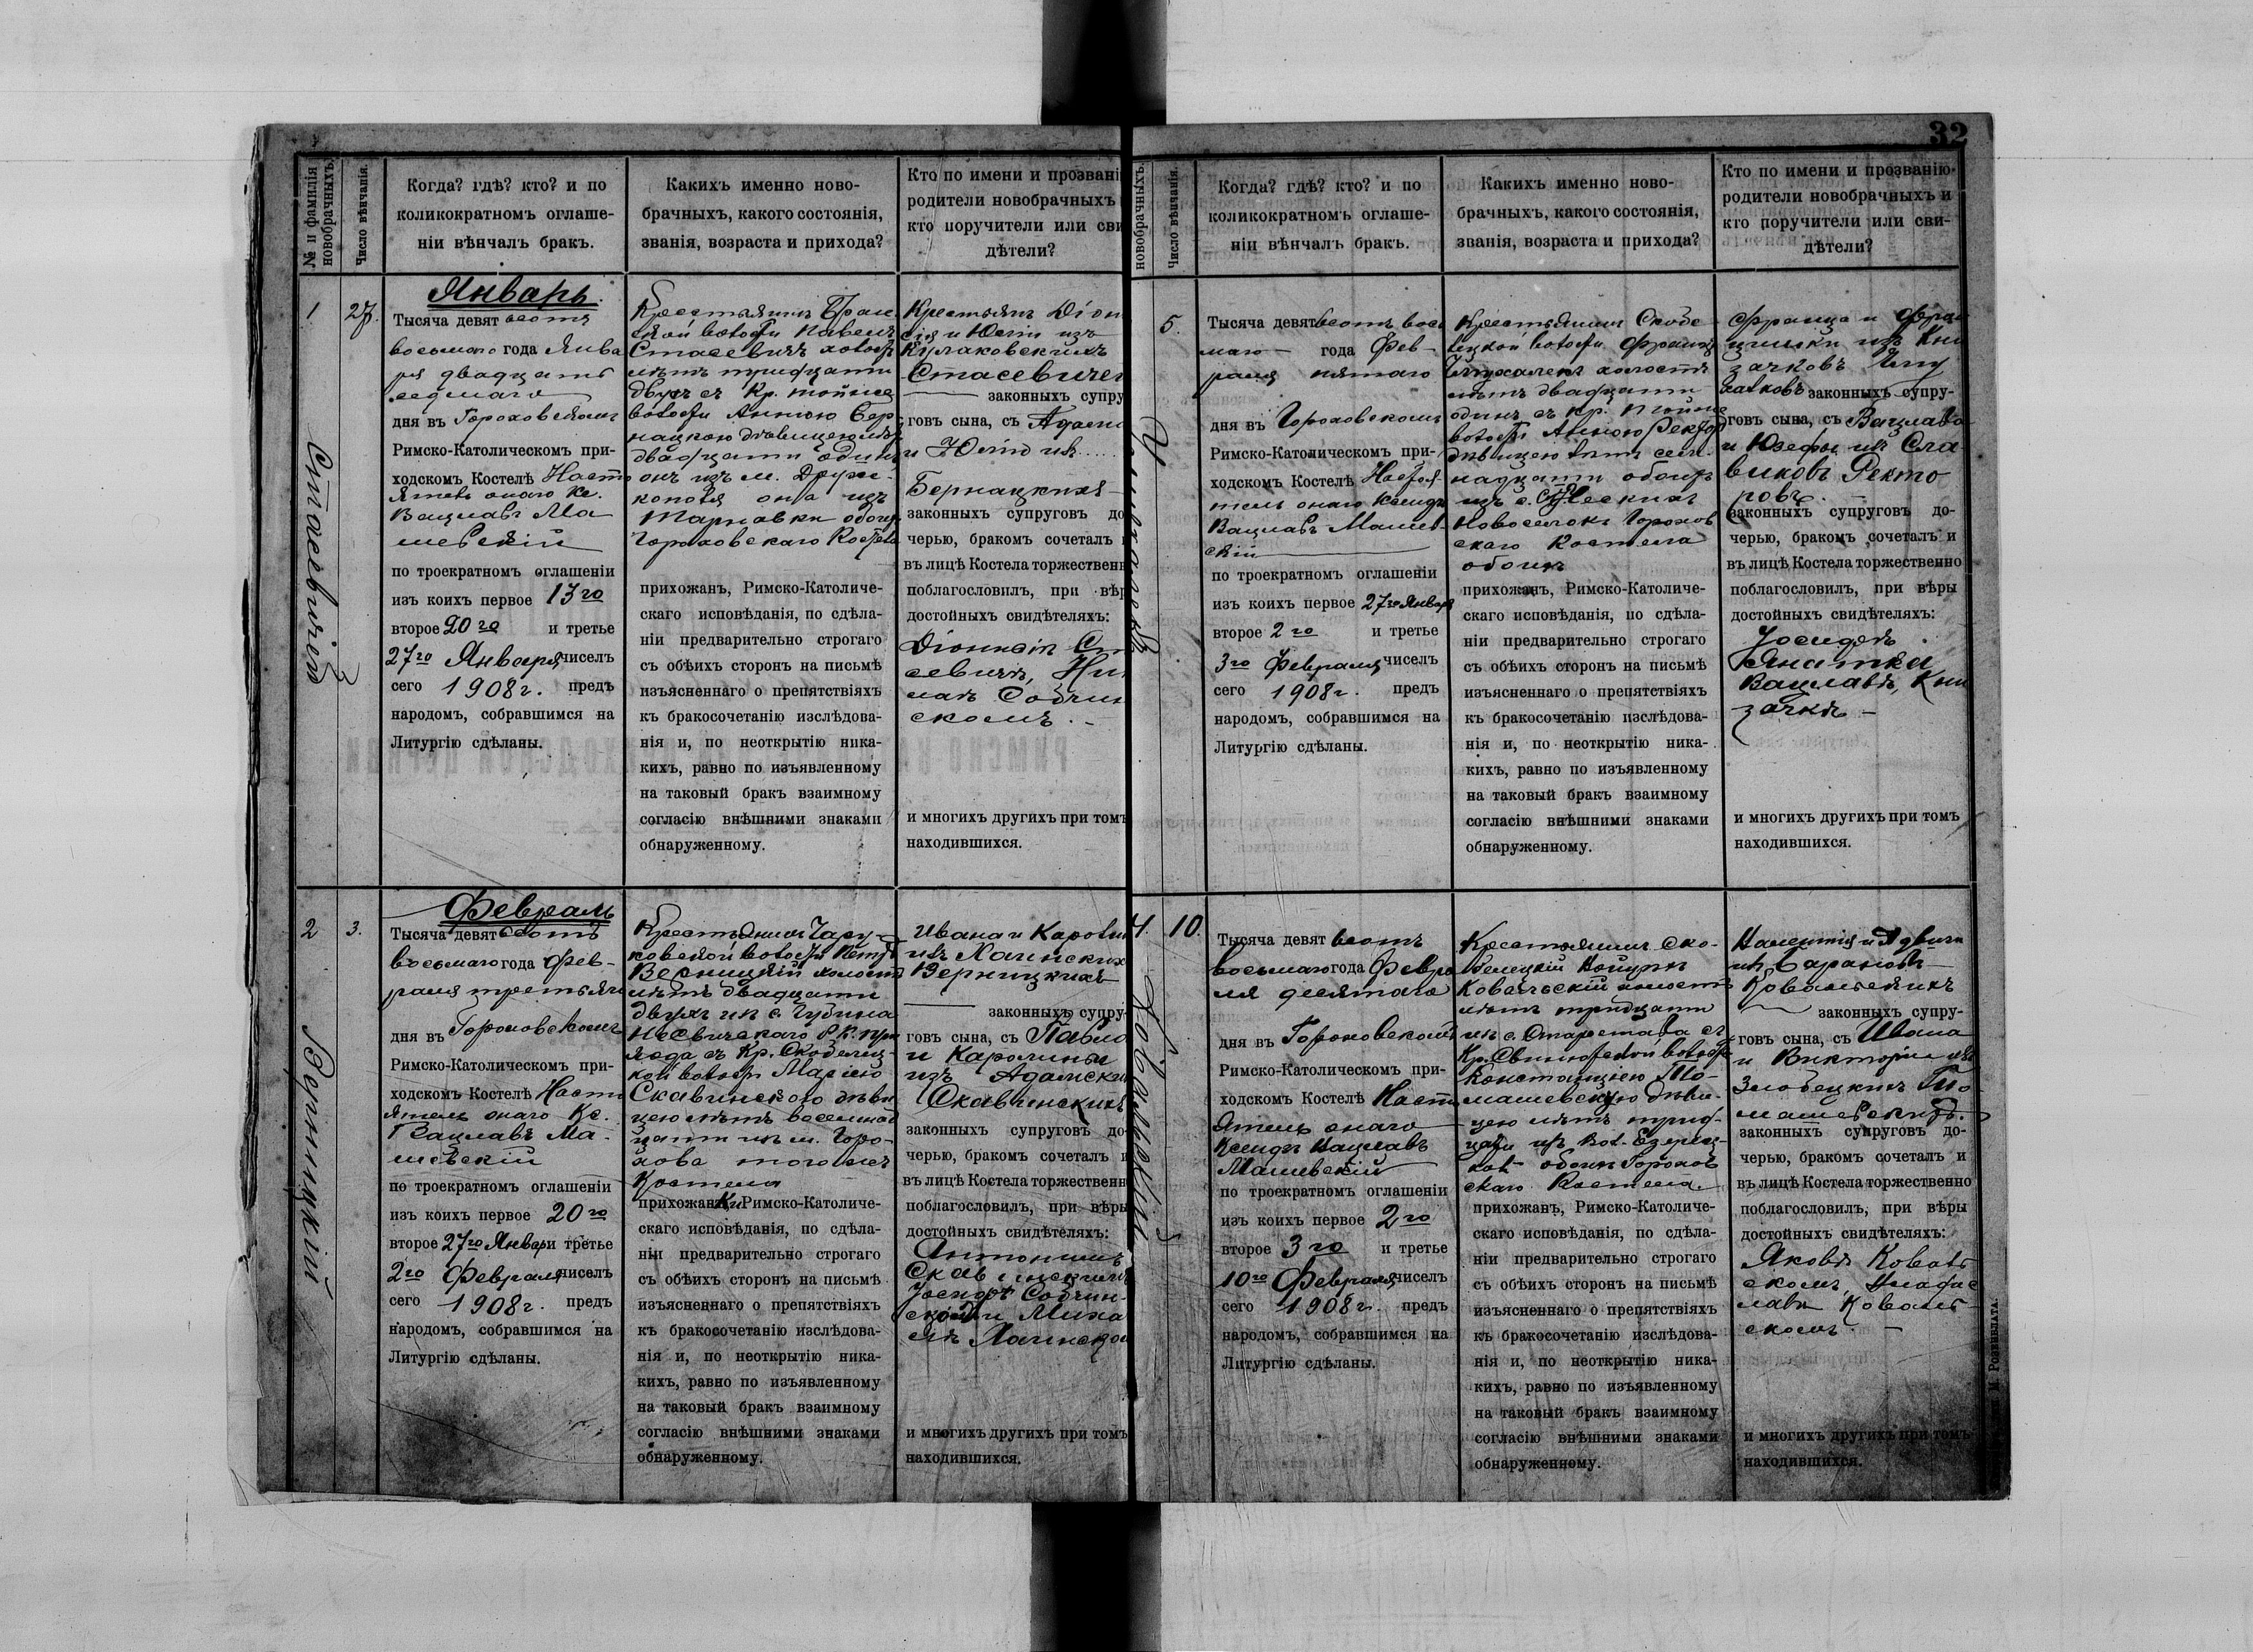 32
№ и фамилія
новобрачныхъ.
Число вѣнчанія.
Когда? гдѣ? кто? и по
коликократномъ оглаше-
ніи вѣнчалъ бракъ.
Какихъ именно ново-
брачныхъ, какого состоянія,
званія, возраста и прихода?
Кто по имени и прозвані
родители новобрачныхъ
кто поручители или сви
дѣтели?
1
Стасевичъ
27.
Январь.
Тысяча девятьсотъ
восьмого года Янва
ря двадцать
седьмаго
дня въ Гороховскомъ
Римско-Католическомъ при-
ходскомъ Костелѣ Насто
ятель оного Кс.
Вацлавъ Ма
шевскій
по троекратномъ оглашеніи
изъ коихъ первое 13го
второе 20го и третье
27го Января чиселъ
сего 1908 г. предъ
народомъ, собравшимся на
Литургію сдѣланы.
Крестьянинъ
волости Павелъ
Стасевичъ холостъ
лѣтъ тридцати
двухъ съ Кр.
волости Анною Бер
нацкою дѣвицею лѣтъ
двадцати
онъ изъ м. Друж-
кополя она изъ
Тарнавки обоихъ
Гороховскаго Костела
прихожанъ, Римско-Католиче-
скаго исповѣданія, по сдѣла-
ніи предварительно строгаго
съ обѣихъ сторонъ на письмѣ
изъясненнаго о препятствіяхъ
къ бракосочетанію изслѣдова-
нія и, по неоткрытію ника-
кихъ, равно по изъявленному
на таковый бракъ взаимному
согласію внѣшними знаками
обнаруженному.
Крестьянъ Діон
сія и Юліи изъ
Кулаковскихъ
Стасевичей
законныхъ супру
говъ сына, съ Адама
и Юліи изъ.....
Бернацкихъ
законныхъ супруговъ до
черью, бракомъ сочеталъ
въ лицѣ Костела торжественн
поблагословилъ, при вѣр
достойныхъ свидѣтеляхъ:
Діонисіи Ста
севичъ,
Собчин
скомъ. -
и многихъ другихъ при томъ
находившихся.
2
Верницкій
3.
Февраль
Тысяча девятьсотъ
восьмаго года Фев-
раля третьяго
дня въ Гороховскомъ
Римско-Католическомъ при-
ходскомъ Костелѣ Насто
ятель онаго Кс.
Вацлавъ Ма-
шевскій
по троекратномъ оглашеніи
изъ коихъ первое 20го
второе 27го Января и третье
2го Февраля чиселъ
сего 1908 г. предъ
народомъ, собравшимся на
Литургію сдѣланы.
Крестьянинъ Чару-
ковской волости Петръ
Верницкій холостъ
лѣтъ двадцати
двухъ изъ с. Губина
Несвичскаго Р.К. при
хода съ Кр. Скобелец-
кой волости Маріею
Скавинскою дѣви
цею лѣтъ восемнад
цати изъ м. Горо-
хова того же
Костела
прихожанки Римско-Католиче-
скаго исповѣданія, по сдѣла-
ніи предварительно строгаго
съ обѣихъ сторонъ на письмѣ
изъясненнаго о препятствіяхъ
къ бракосочетанію изслѣдова-
нія и, по неоткрытію ника-
кихъ, равно по изъявленному
на таковый бракъ взаимному
согласію внѣшними знаками
обнаруженному.
Ивана и Каролин
изъ
Верницкихъ
законныхъ супру-
говъ сына, съ
и Каролины
изъ Адамски
Скавинскихъ
законныхъ супруговъ до-
черью, бракомъ сочеталъ и
въ лицѣ Костела торжественн
поблагословилъ, при вѣры
достойныхъ свидѣтеляхъ:
Антонимъ
Скавинскимъ
Іосифъ Собчин-
скомъ и Миха
илъ
и многихъ другихъ при томъ
находившихся.
новобрачныхъ.
Число вѣнчанія.
Когда? гдѣ? кто? и по
коликократномъ оглаше-
ніи вѣнчалъ бракъ.
Какихъ именно ново-
брачныхъ, какого состоянія,
званія, возраста и прихода?
Кто по имени и прозванію
родители новобрачныхъ и
кто поручители или сви-
дѣтели?
5.
Тысяча девятьсотъ вось
маго года Фев-
раля пятаго
дня въ Гороховскомъ
Римско-Католическомъ при-
ходскомъ Костелѣ Настоя-
тель онаго Ксендзъ
Вацлавъ Машев-
скій
по троекратномъ оглашеніи
изъ коихъ первое 27го Января
второе 2го и третье
3го Февраля чиселъ
сего 1908 г. предъ
народомъ, собравшимся на
Литургію сдѣланы.
Крестьянинъ Скобе
лецкой волости Францъ
холостъ
лѣтъ двадцати
одинъ съ Кр.
волости Анною Ректор
дѣвицею лѣтъ сем-
надцати обоихъ
изъ с.
Новоселокъ Горохов
скаго Костела
обоихъ
прихожанъ, Римско-Католиче-
скаго исповѣданія, по сдѣла-
ніи предварительно строгаго
съ обѣихъ сторонъ на письмѣ
изъясненнаго о препятствіяхъ
къ бракосочетанію изслѣдова-
нія и, по неоткрытію ника-
кихъ, равно по изъявленному
на таковый бракъ взаимному
согласію внѣшними знаками
обнаруженному.
Франца и Фран
цишки изъ Кни
зачковъ
законныхъ супру-
говъ сына, съ Вацлава
и Юзефы изъ Сла
виковъ Ректо
ровъ. -
законныхъ супруговъ до-
черью, бракомъ сочеталъ и
въ лицѣ Костела торжественно
поблагословилъ, при вѣры
достойныхъ свидѣтеляхъ:
Іосифъ
Янатка
Вацлавъ, Кни
зачкъ -
и многихъ другихъ при томъ
находившихся.
4.
Ковальскій
10.
Тысяча девятьсотъ
восьмаго года Февра
ля десятаго
дня въ Гороховскомъ
Римско-Католическомъ при-
ходскомъ Костелѣ Насто
ятель онаго
Ксендзъ Вацлавъ
Машевскій
по троекратномъ оглашеніи
изъ коихъ первое 2го
второе 3го и третье
10го Февраля чиселъ
сего 1908 г. предъ
народомъ, собравшимся на
Литургію сдѣланы.
Крестьянинъ Ско-
белецкій
Ковальскій холостъ
лѣтъ тридцати
изъ с. съ
Кр. волости
Констанціею То-
машевскую дѣви-
цею лѣтъ трид-
цати изъ
обоихъ Горохов
скаго Костела.
прихожанъ, Римско-Католиче-
скаго исповѣданія, по сдѣла-
ніи предварительно строгаго
съ обѣихъ сторонъ на письмѣ
изъясненнаго о препятствіяхъ
къ бракосочетанію изслѣдова-
нія и, по неоткрытію ника-
кихъ, равно по изъявленному
на таковый бракъ взаимному
согласію внѣшними знаками
обнаруженному.
и Ядвиги
изъ
Ковальскихъ
законныхъ супру-
говъ сына, съ Ивана
и Викторіи изъ
То-
машевскихъ.
законныхъ супруговъ до-
черью, бракомъ сочеталъ и
въ лицѣ Костела торжественно
поблагословилъ, при вѣры
достойныхъ свидѣтеляхъ:
Яковъ Коваль
скомъ, Владис
лавъ Коваль-
скомъ. -
и многихъ другихъ при томъ
находившихся.
М. Розенблата.